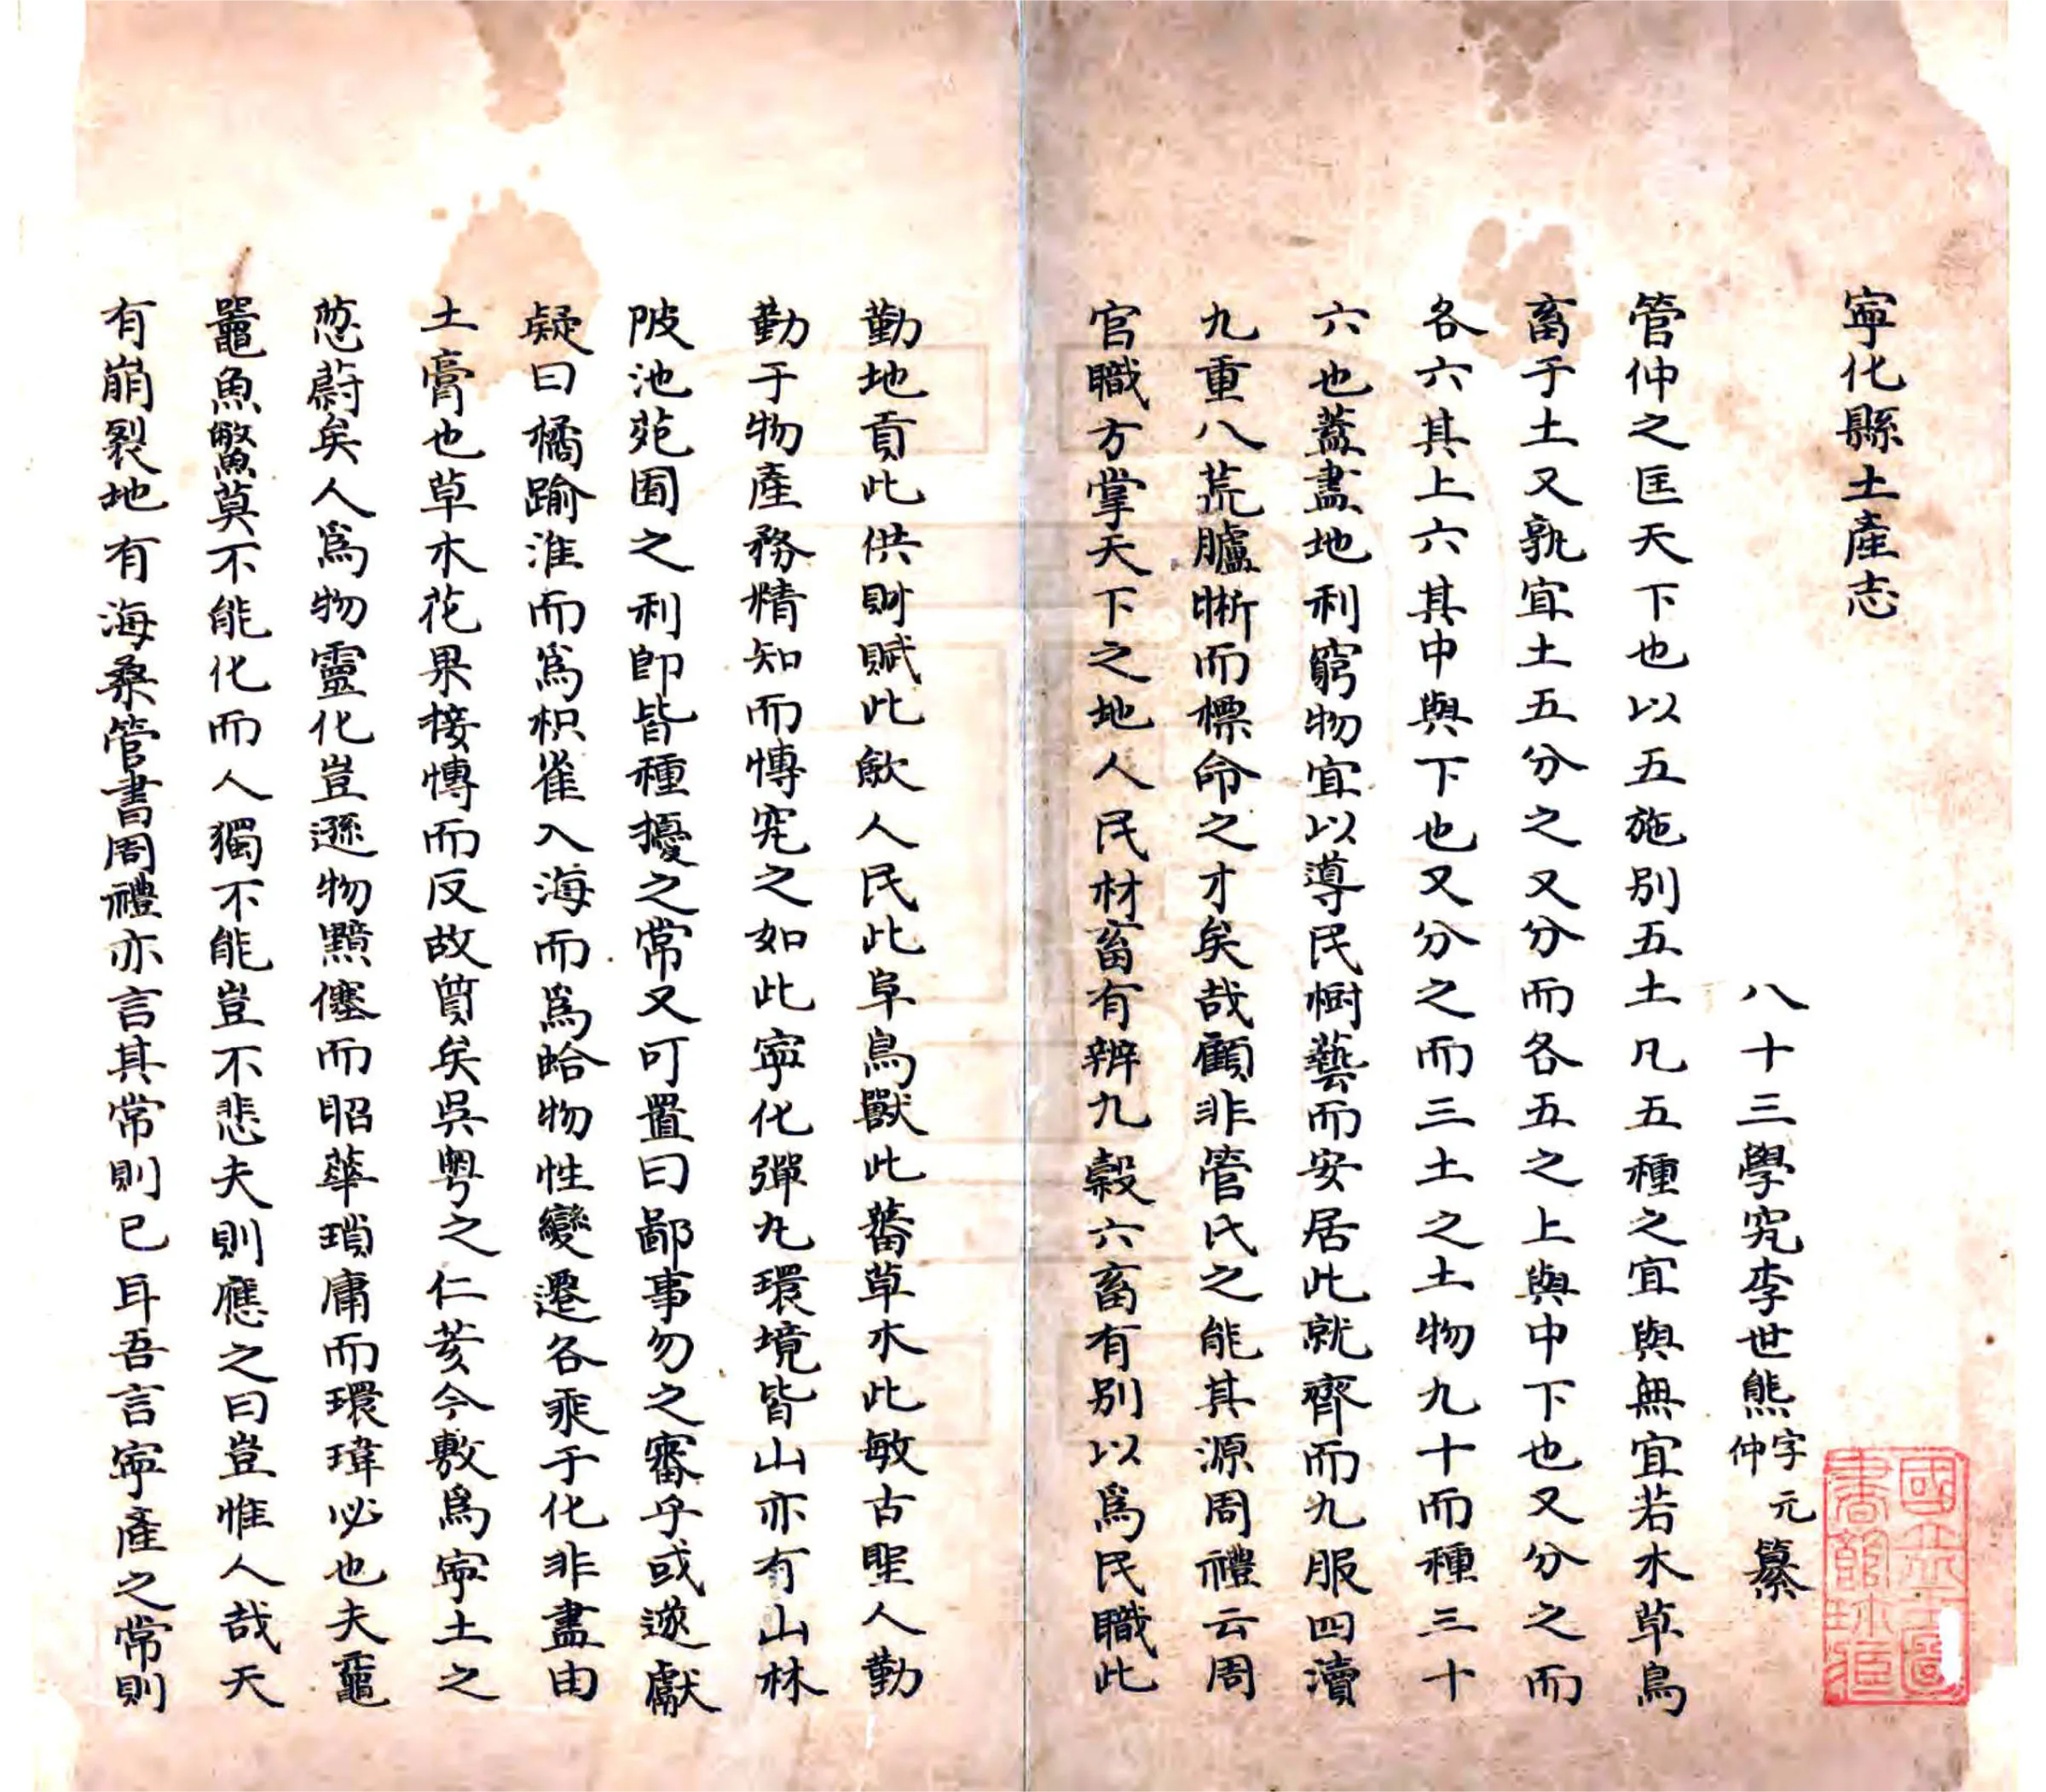 寧化縣土產志
八十三學究李世熊字元仲纂
管仲之匡天下也以五施別五土凡五種之宜與無宜若木草鳥
畜于土又孰宜土五分之又分而各五之上與中下也又分之而
各六其上六其中與下也又分之而三土之土物九十而種三十
六也蓋盡地利窮物宜以導民樹藝而安居此就齊而九服四瀆
九重八荒臚晰而標命之才矣哉顧非管氏之能其源周禮云周
官職方掌天下之地人民材畜有辨九穀六畜有別以為民職此
勤地貢此供財賦此歛人民此阜鳥獸此蕃草木此敏古聖人勤
勤于物產務精知而慱究之如此寧化彈丸環境皆山亦有山林
陂池苑囿之利卽皆種擾之常又可置曰鄙事勿之審乎或遂獻
疑曰橘踰淮而爲枳雀入海而爲蛤物性變遷各乘于化非盡由
土膏也草木花果接慱而反故質矣吳粤之仁荄今敷爲寧土之
葱蔚矣人爲物靈化豈遜物黯僿而昭華瑣庸而環瑋必也夫黿
鼉魚鱉莫不能化而人獨不能豈不悲夫則應之曰豈惟人哉天
有崩裂地有海桑管書周禮亦言其常則已耳吾言寧產之常則
國立北平圖書館珍藏